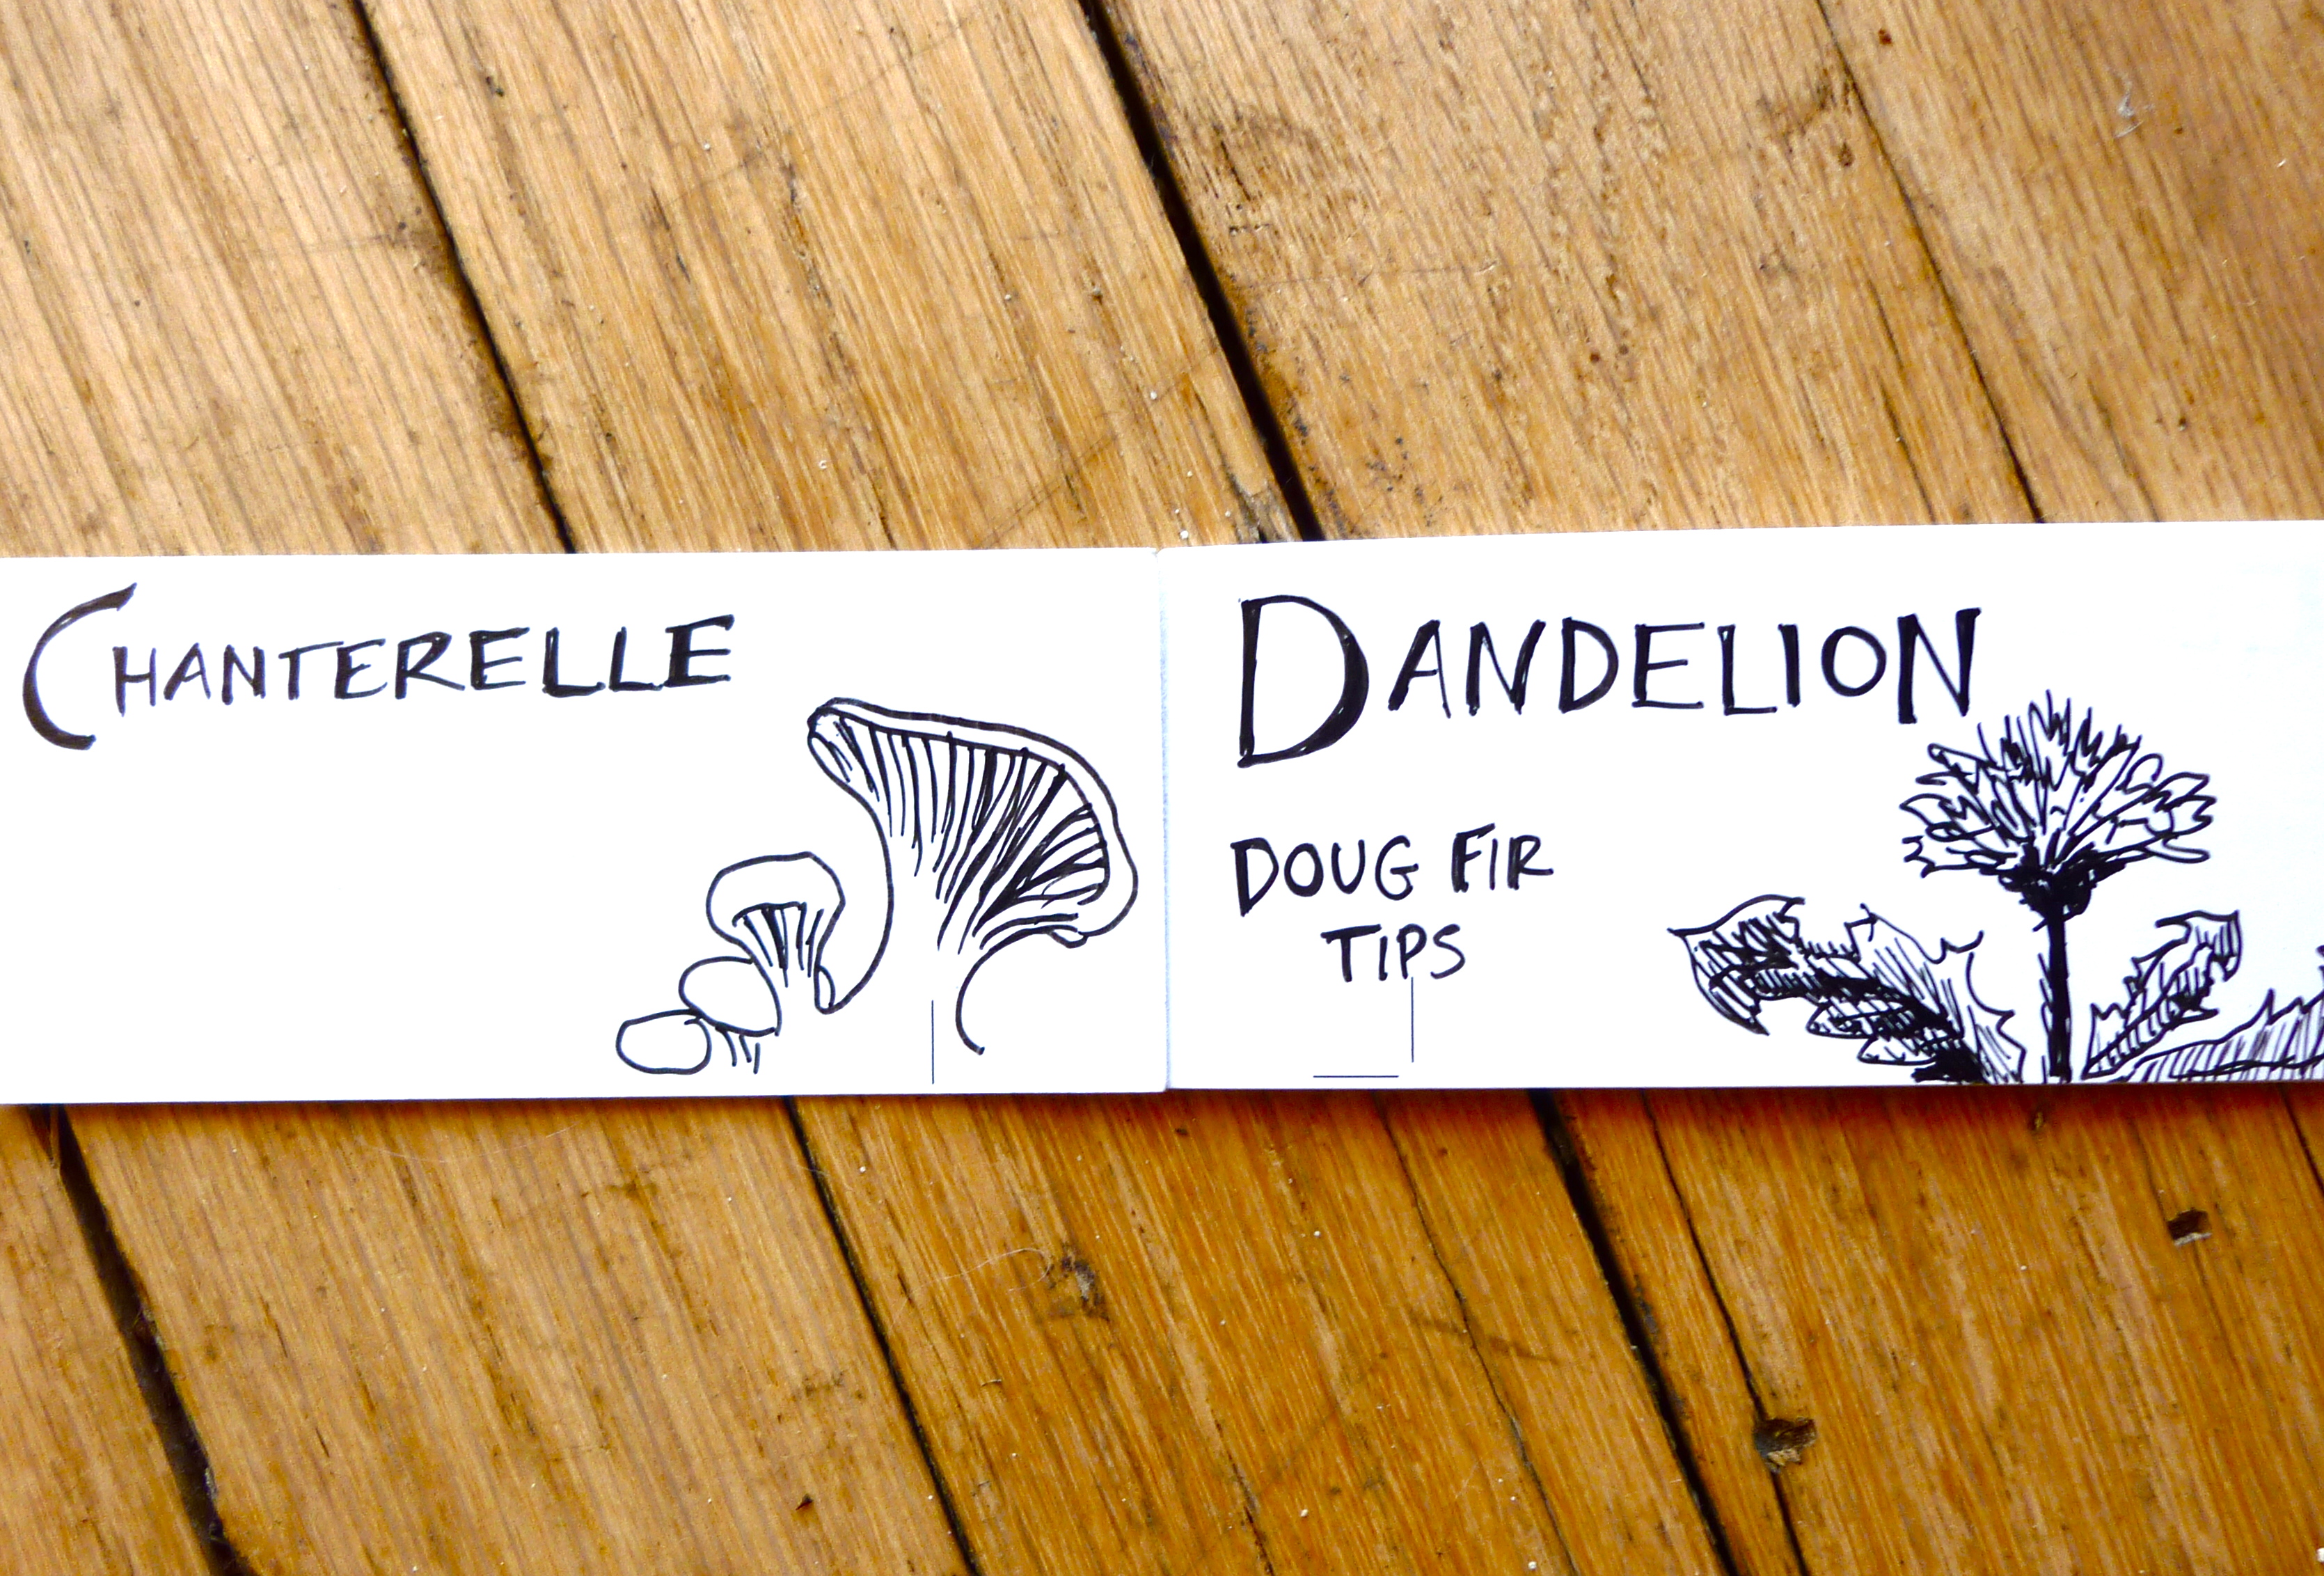 CHANTERELLE
DANDELION
DOUG FIR
TIPS